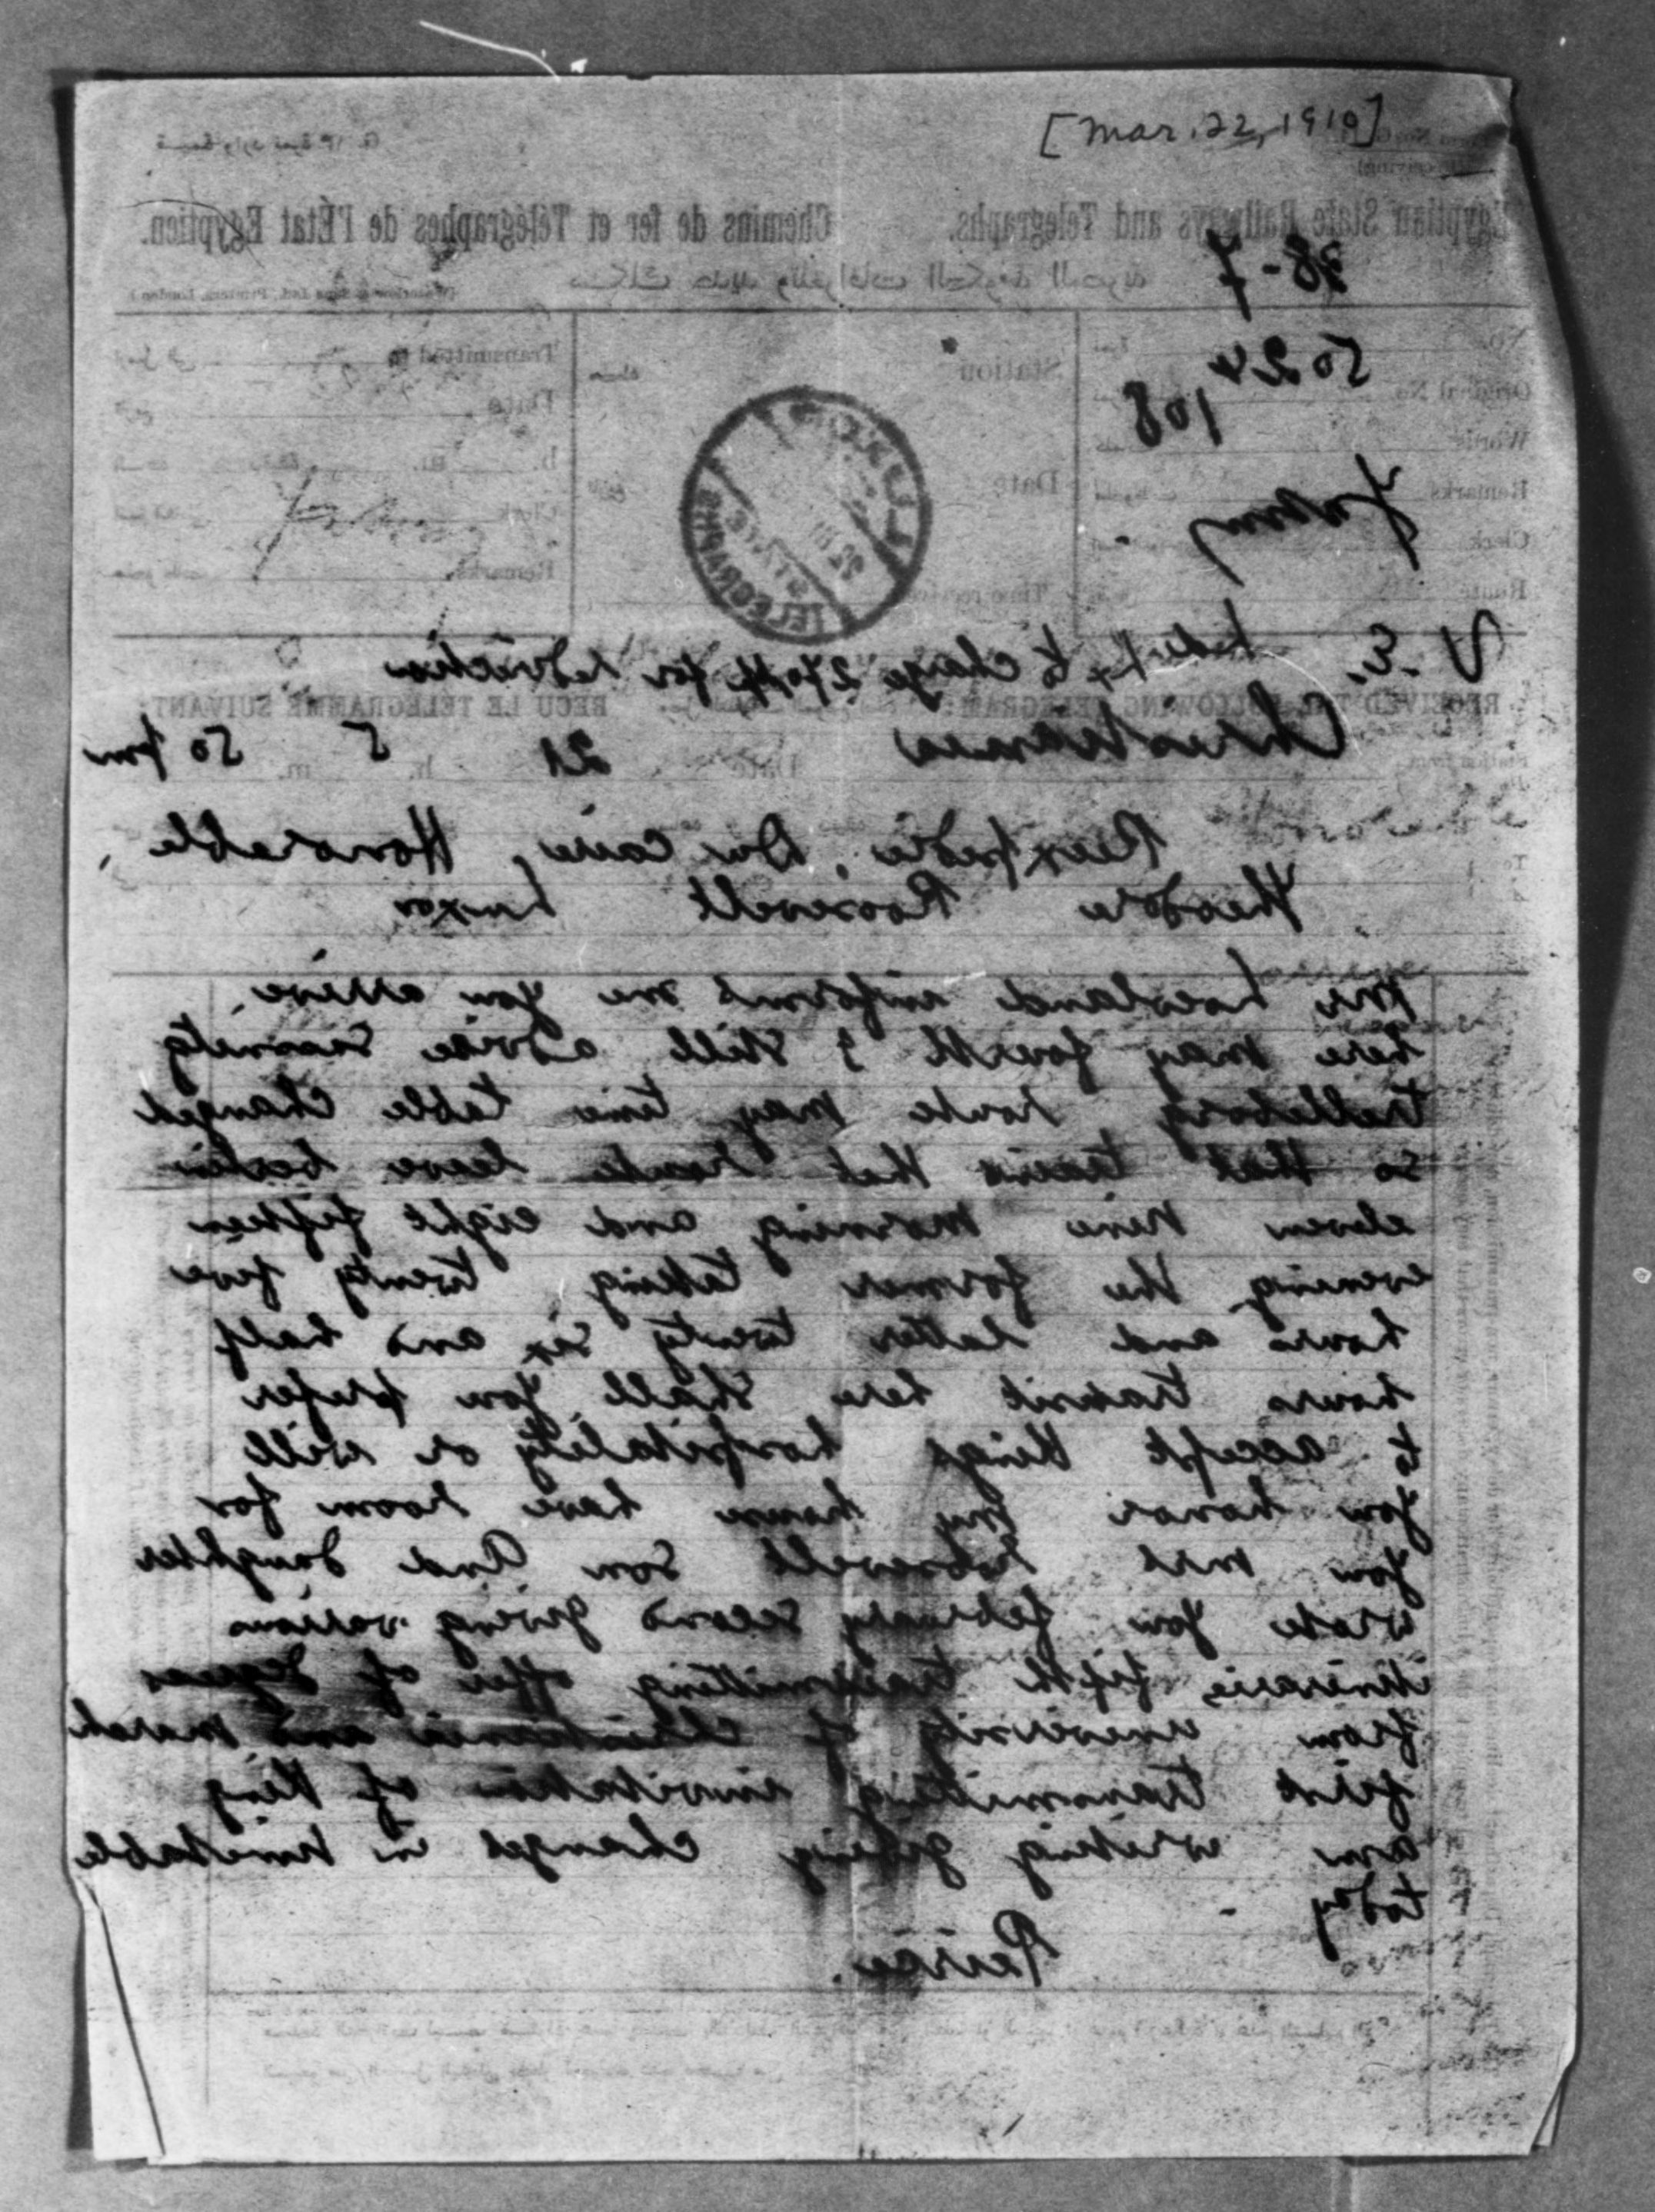 [Mar. 22, 1910]
Egyptian State Railways and Telegraphs. Chemins de fer et Télégraphes de l'État Egyptien.
38-7
No.
Original No. 5024
Words 108
Remarks
Clerk
Route
Station
Date
Time received
Transmitted to
Date
h. m.
Clerk
Remarks
TELEGRAPHS
V - E. to charge 270 for
RECEIVED THE FOLLOWING TELEGRAM: REÇU LE TÉLÉGRAMME SUIVANT:
Christiania Date 21 h. 5 m. 50 pm
Honorable
Theodore Roosevelt Luxor
Mr Loeoland informs me you arrive
here may fourth I still advise Sassnitz
trelleborg route may time table changed
so that trains that route leave berlin
eleven nine morning and eight fifteen
evening the former taking twenty five
hours and latter twenty six and half
hours transit here shall you prefer
to accept kings hospitality or will
you honor my house have room for
you mrs Roosevelt son and daughter
wrote you february second giving various
itineraries fifth transmitting offer of degree
from university of christiania and march
first transmitting invitation of King
am writing giving changes in timetable
today -
Peirce.